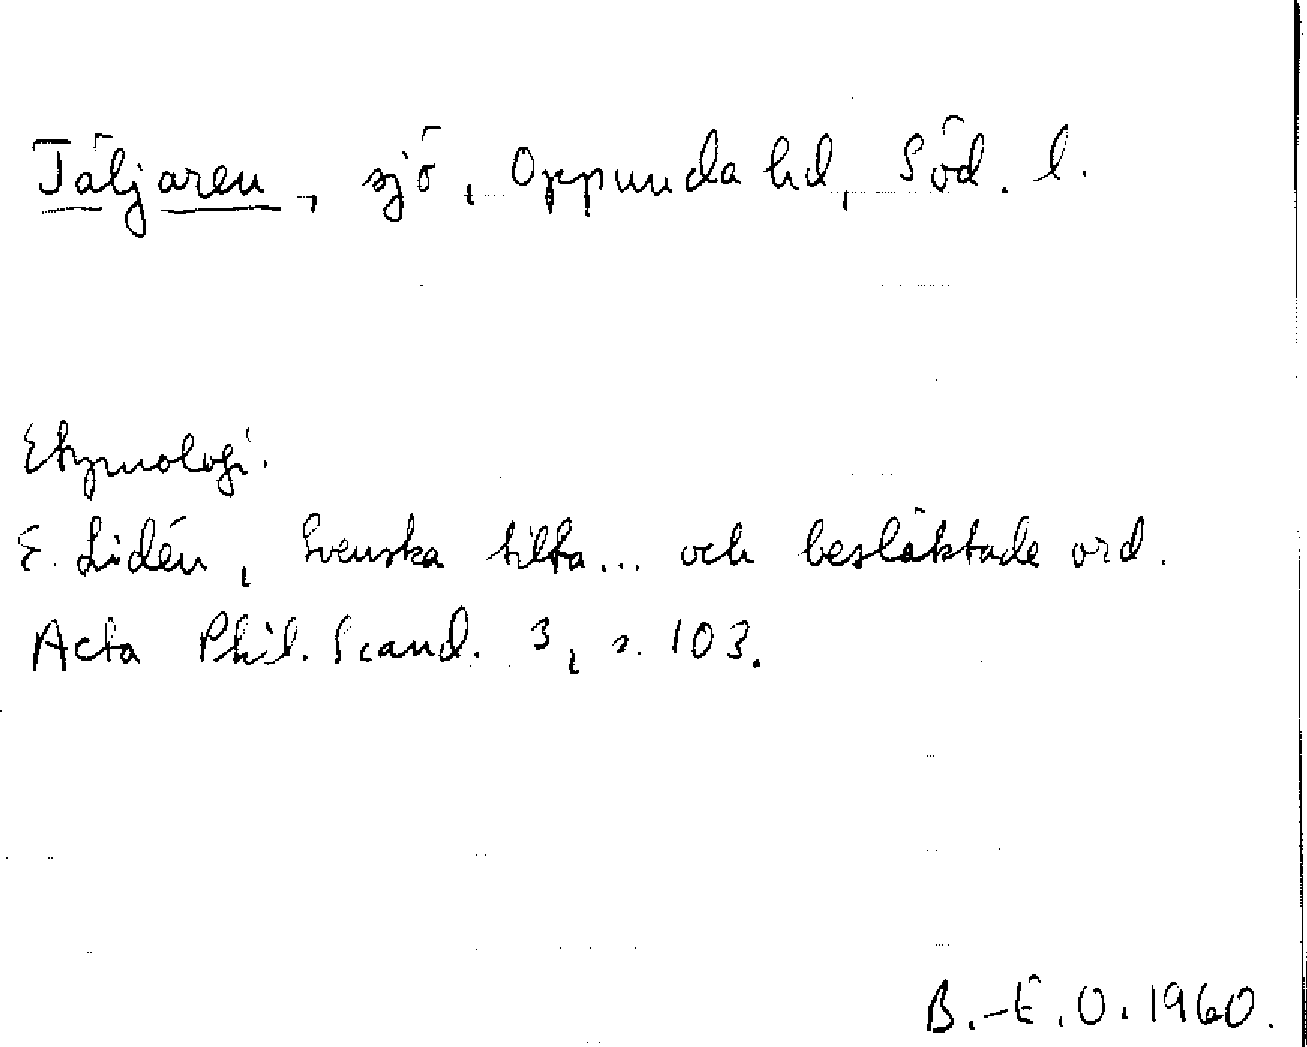 Täljaren, sjö, Oppunda hd, Söd. l.
Etymologi.
E. Lidén, Svenska tilta... och besläktade ord.
Acta Phil. Scand. 3, s. 103.
B.-E. O. 1960.